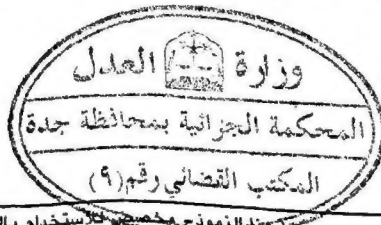 وزارة العدل
المحكمة الجزائية بمحافظة جدة
المكتب القضائي رقم (٩)
هذا النموذج مخصص للاستخدام